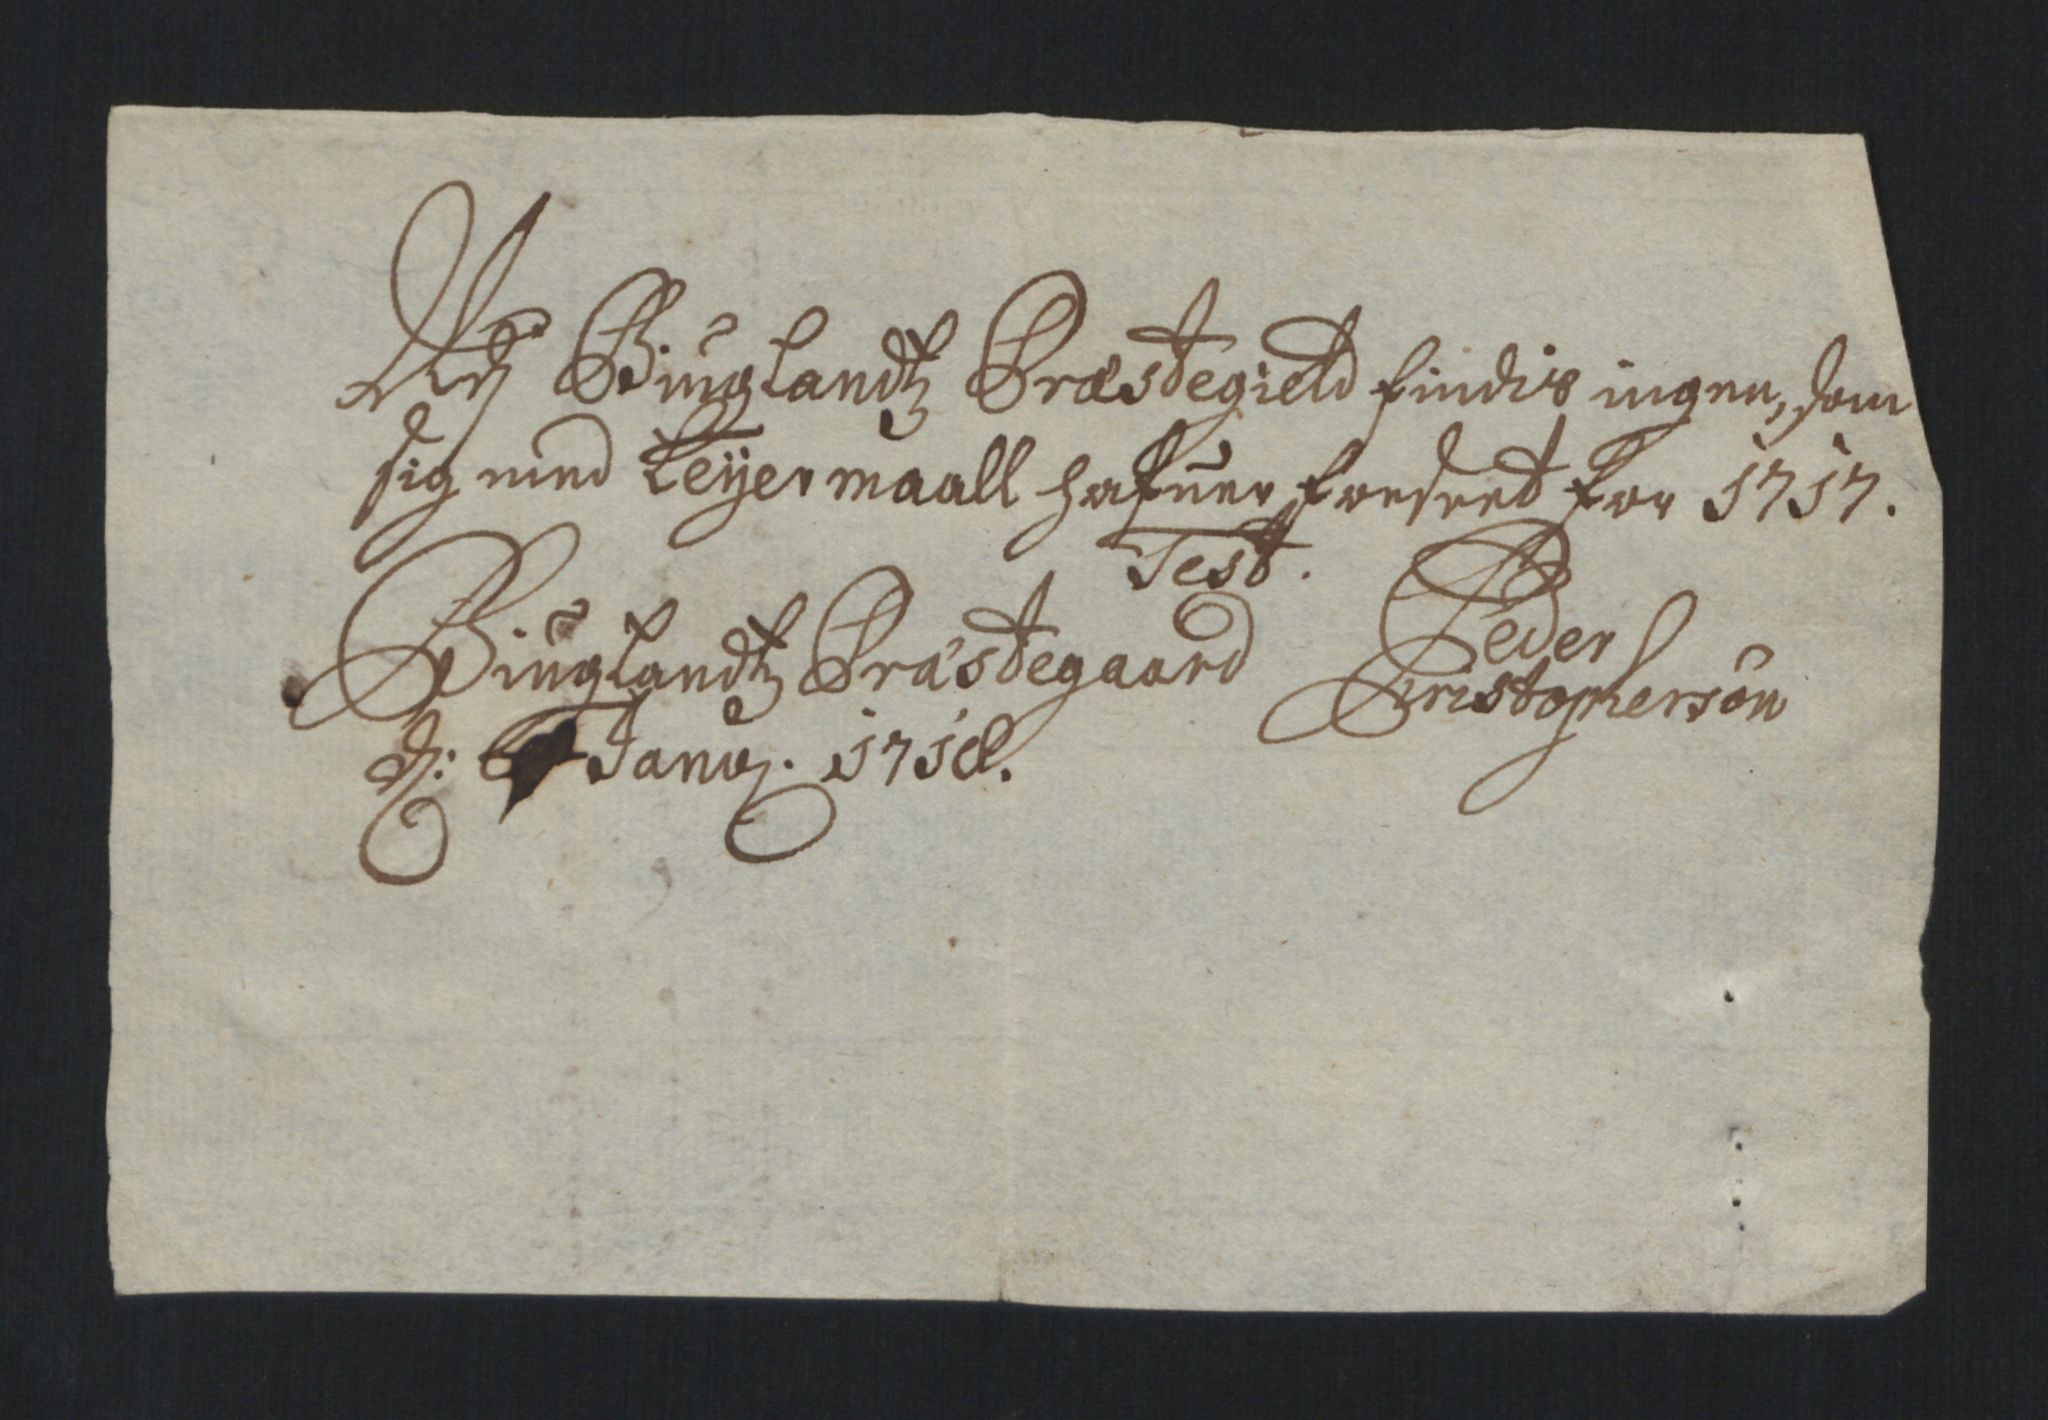 Udj Biuglandtz Præstegield findis ingen, som
sig med Leyermaall hafuer forseet for 1717.
Test.
Biuglandtz Præstegaard Peder
d: Janu. 1718. Christophersøn